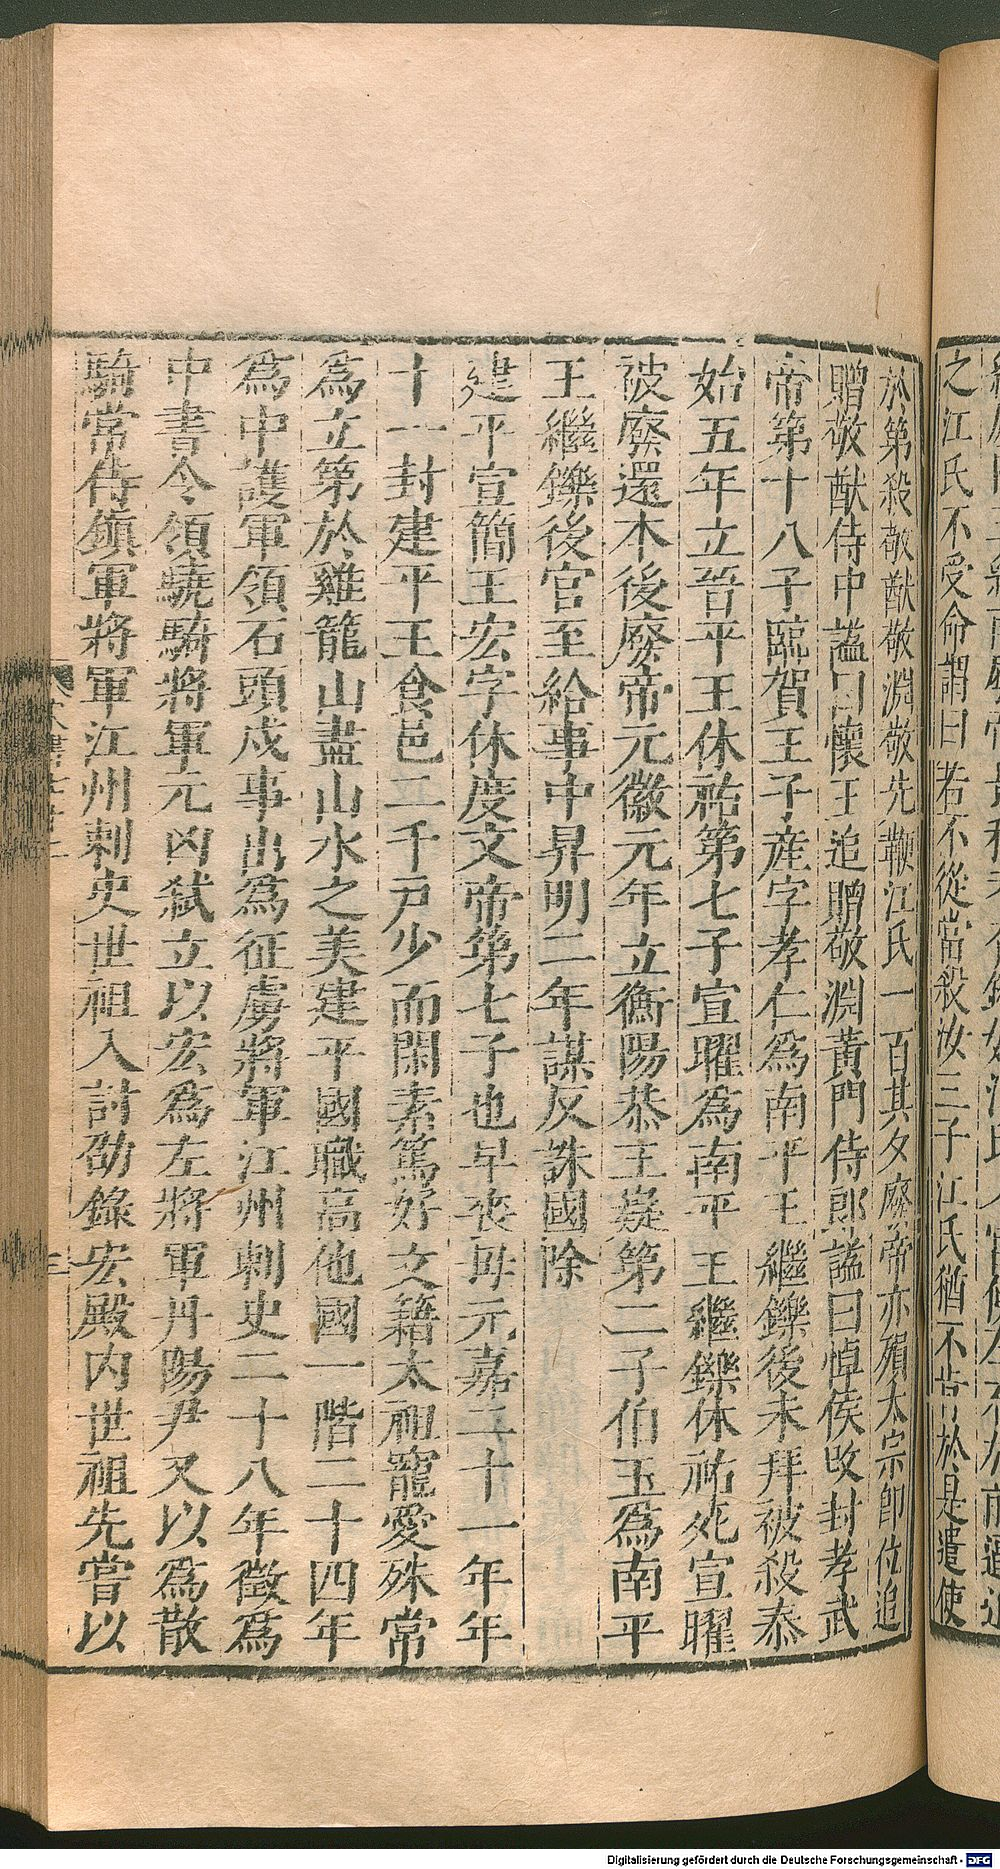 之江氏不受命謂曰若不從當殺汝三子江氏猶不肯於是遣使
於第殺敬猷敬淵敬先鞭江氏一百其夕廢帝亦殞太宗即位追
贈敬猷侍中謚曰懷王追贈敬淵黃門侍郎謚曰悼侯改封孝武
帝第十八子臨賀王子産字孝仁爲南平王繼鑠後未拜被殺泰
始五年立晉平王休祐第七子宣曜爲南平王繼鑠休祐死宣曜
被廢還本後廢帝元徽元年立衡陽恭王嶷第二子伯玉爲南平
王繼鑠後官至給事中昇明二年謀反誅國除
建平宣簡王宏字休度文帝第七子也早喪母元嘉二十一年年
十一封建平王食邑二千戸少而閑素篤好文籍太祖寵愛殊常
爲立第於雞籠山盡山水之美建平國職高他國一階二十四年
爲中護軍領石頭戍事出爲征虜將軍江州刺史二十八年徵爲
中書令領驍騎將軍元凶弑立以宏爲左將軍丹陽尹又以爲散
騎常侍鎭軍將軍江州刺史世祖入討劭錄宏殿内世祖先嘗以